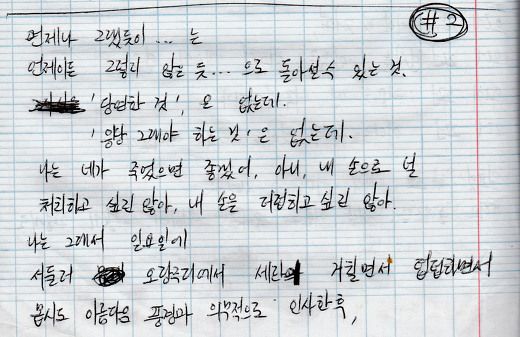 #2
언제나 그랬듯이 ... 는
언제이든 그렇지 않은 듯... 으로 돌아볼 수 있는 것.
'당연한 것', 은 없는데.
'응당 그래야 하는 것' 은 없는데.
나는 네가 죽었으면 좋겠어, 아니, 내 손으로 널
처리하고 싶진 않아, 내 손은 더럽히고 싶진 않아.
나는 그래서 일요일에
서둘러 에서 면서 면서
몹시도 아름다움 풍경과 의무적으로 인사한 후,